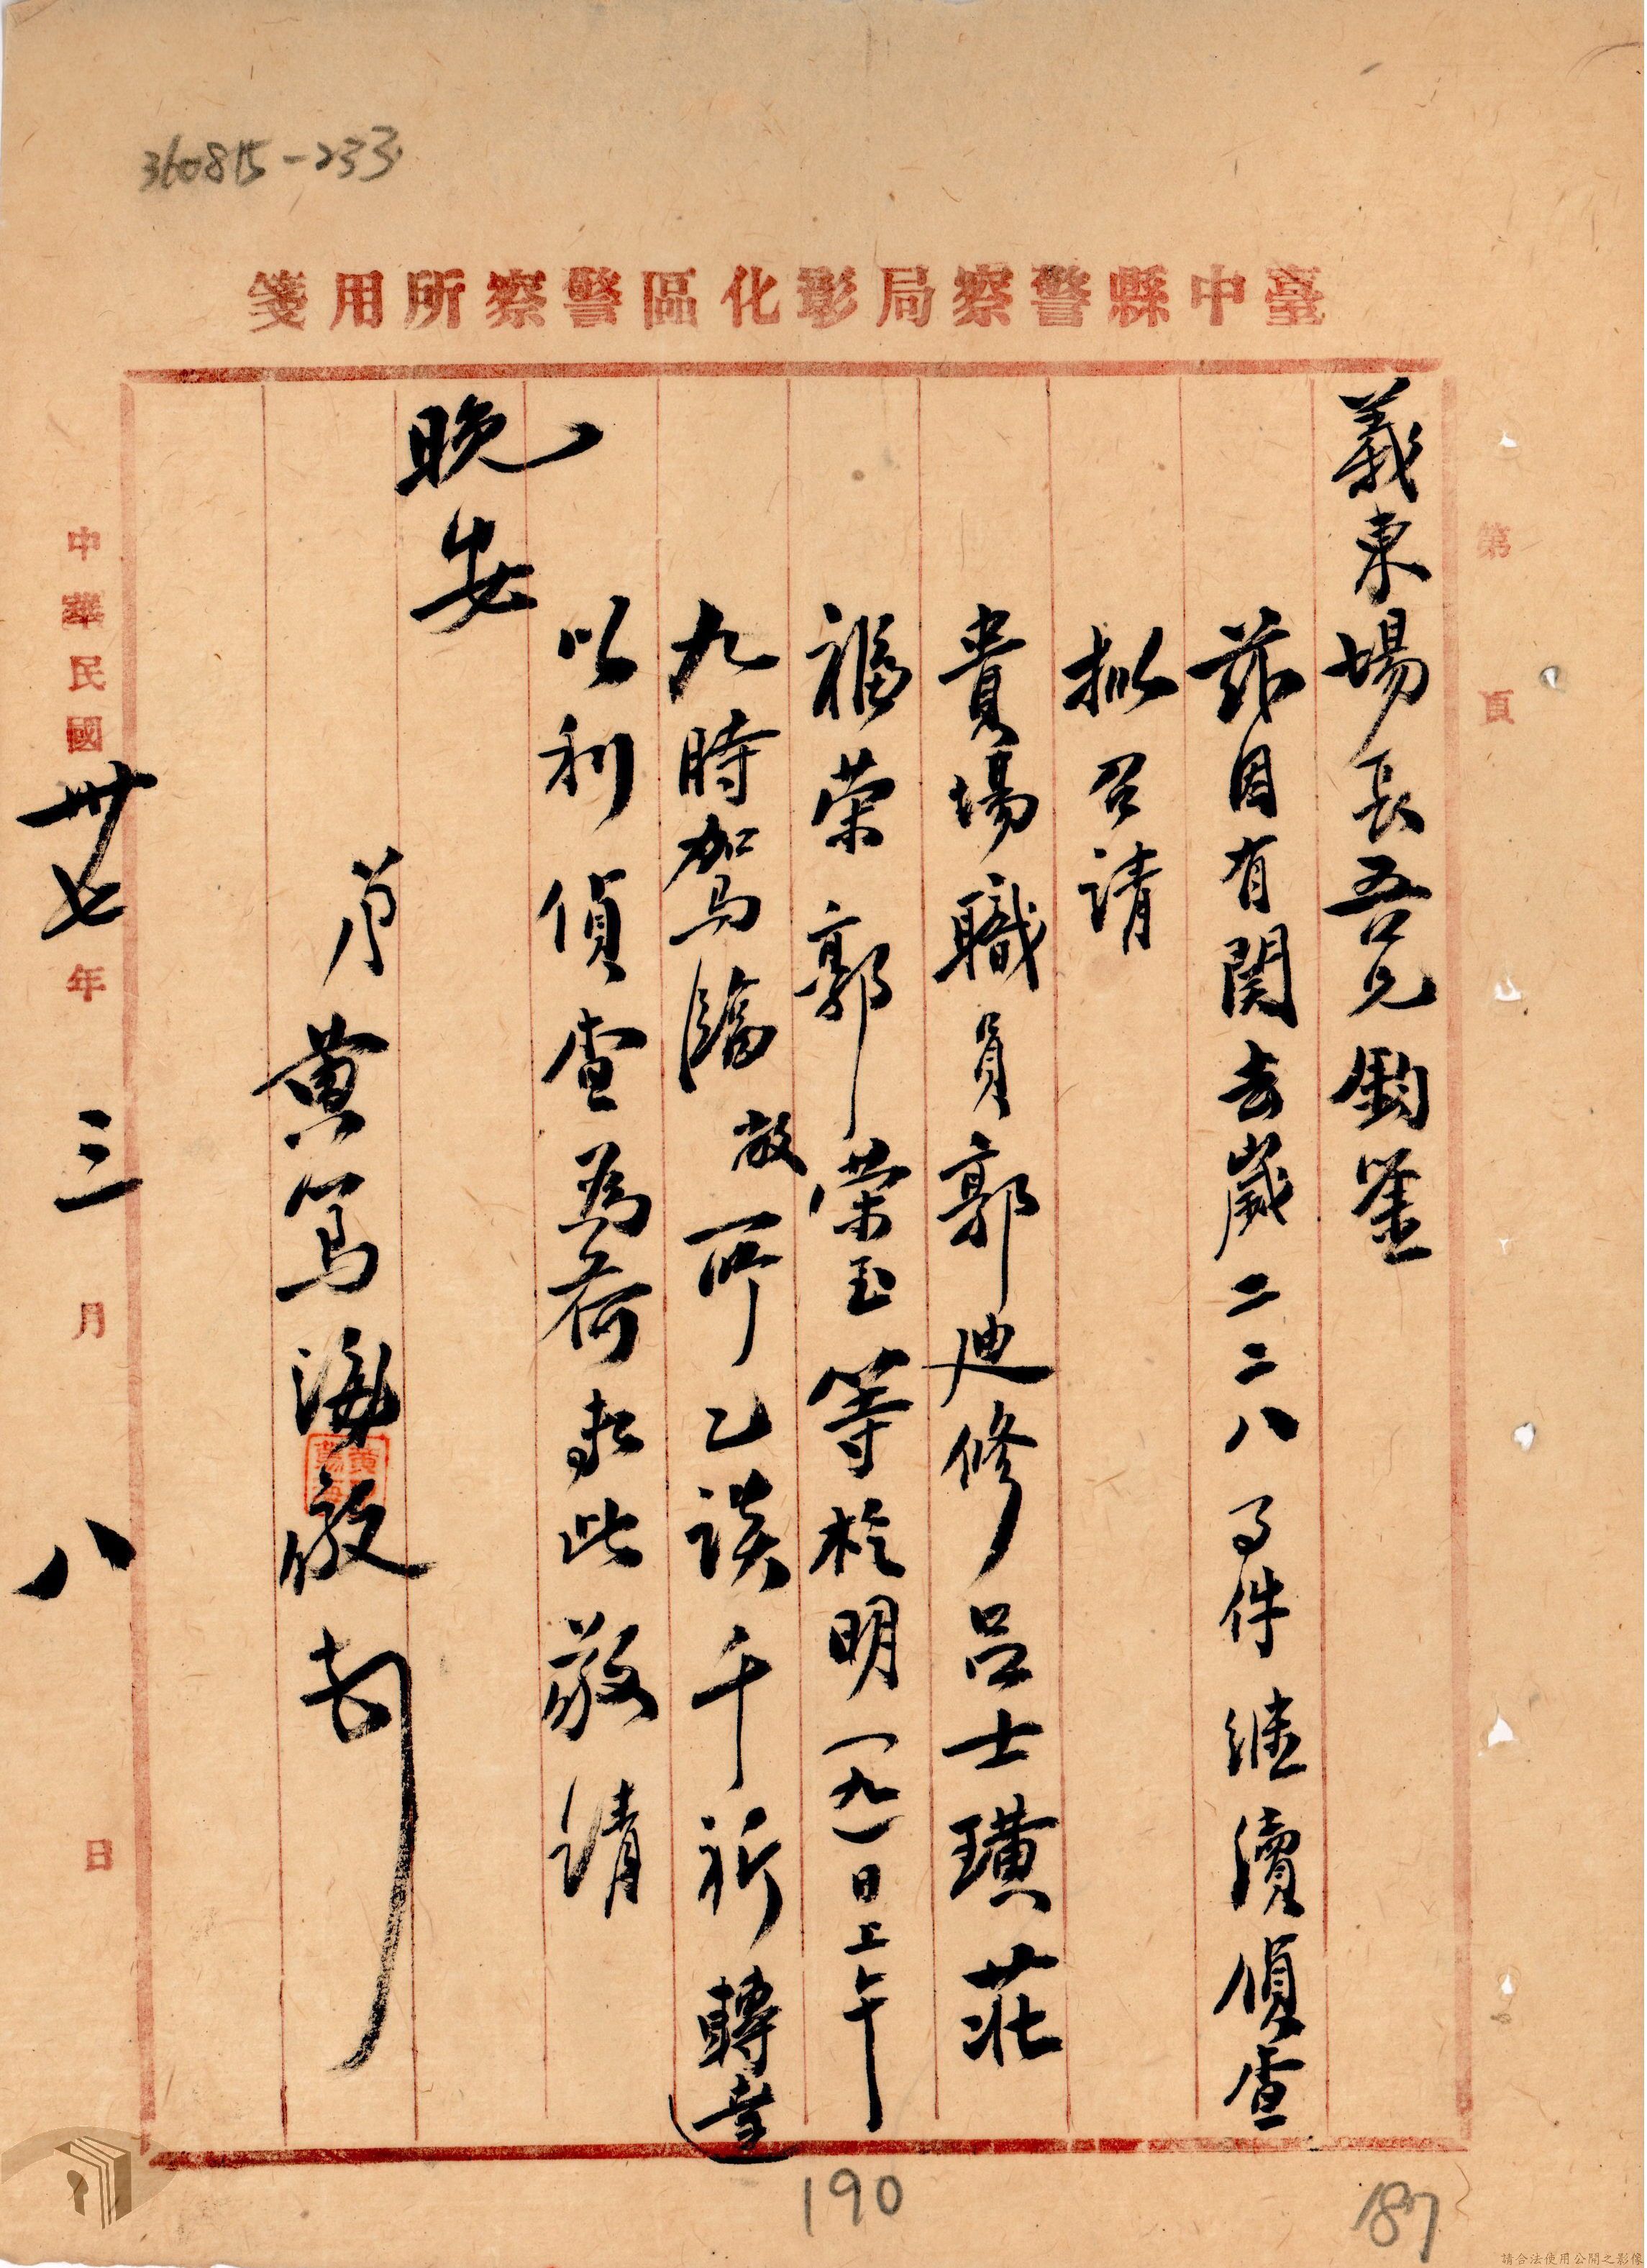 360815-233
臺中縣警察局彰化區警察所用箋
第 頁
義東場長吾兄鈞鉴
茲因有関去歲二二八事件継續偵查
拟召请
貴場職員郭迪修吕士璜莊
福荣郭荣玉等於明(九)日上午
九時駕臨敝所乙談千祈轉達
以利偵查為荷耑此敬请
晚安
弟黄篤海敬啟
中華民國卅七年三月八日
190
187
請合法使用公開之影像